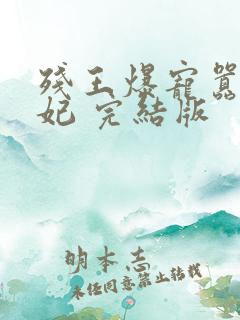 残王爆寵囂
妃 完結版
明本志
未任同意禁止转载